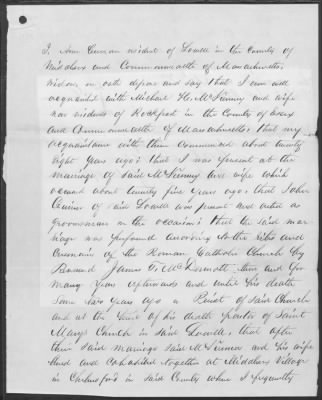 I, Ann Curran resident of Lowell in the County of
Middlesex and Commonwealth of Massachusetts,
widow, on oath depose and say that I am well
acquainted with Michael H. McKinney and wife
now residents of Rockport in the County of Essex
and Commonwealth of Massachusetts; that my
acquaintance with them commenced about twenty
eight years ago; that I was present at the
marriage of said McKinney and wife which
occurred about twenty five years ago; that John
Quinn of said Lowell was present and acted as
groomsman on the occasion; that the said mar-
riage was performed according to the rites and
ceremonies of the Roman Catholic Church by
Reverend James T. McDermott, then and for
many years afterwards and until his death
some six years ago a Priest of said Church
and at the time of his death pastor of Saint
Mary's Church in said Lowell; that after
their said marriage said McKinney and his wife
lived and cohabited together at Middlesex Village
in Chelmsford in said County where I frequently